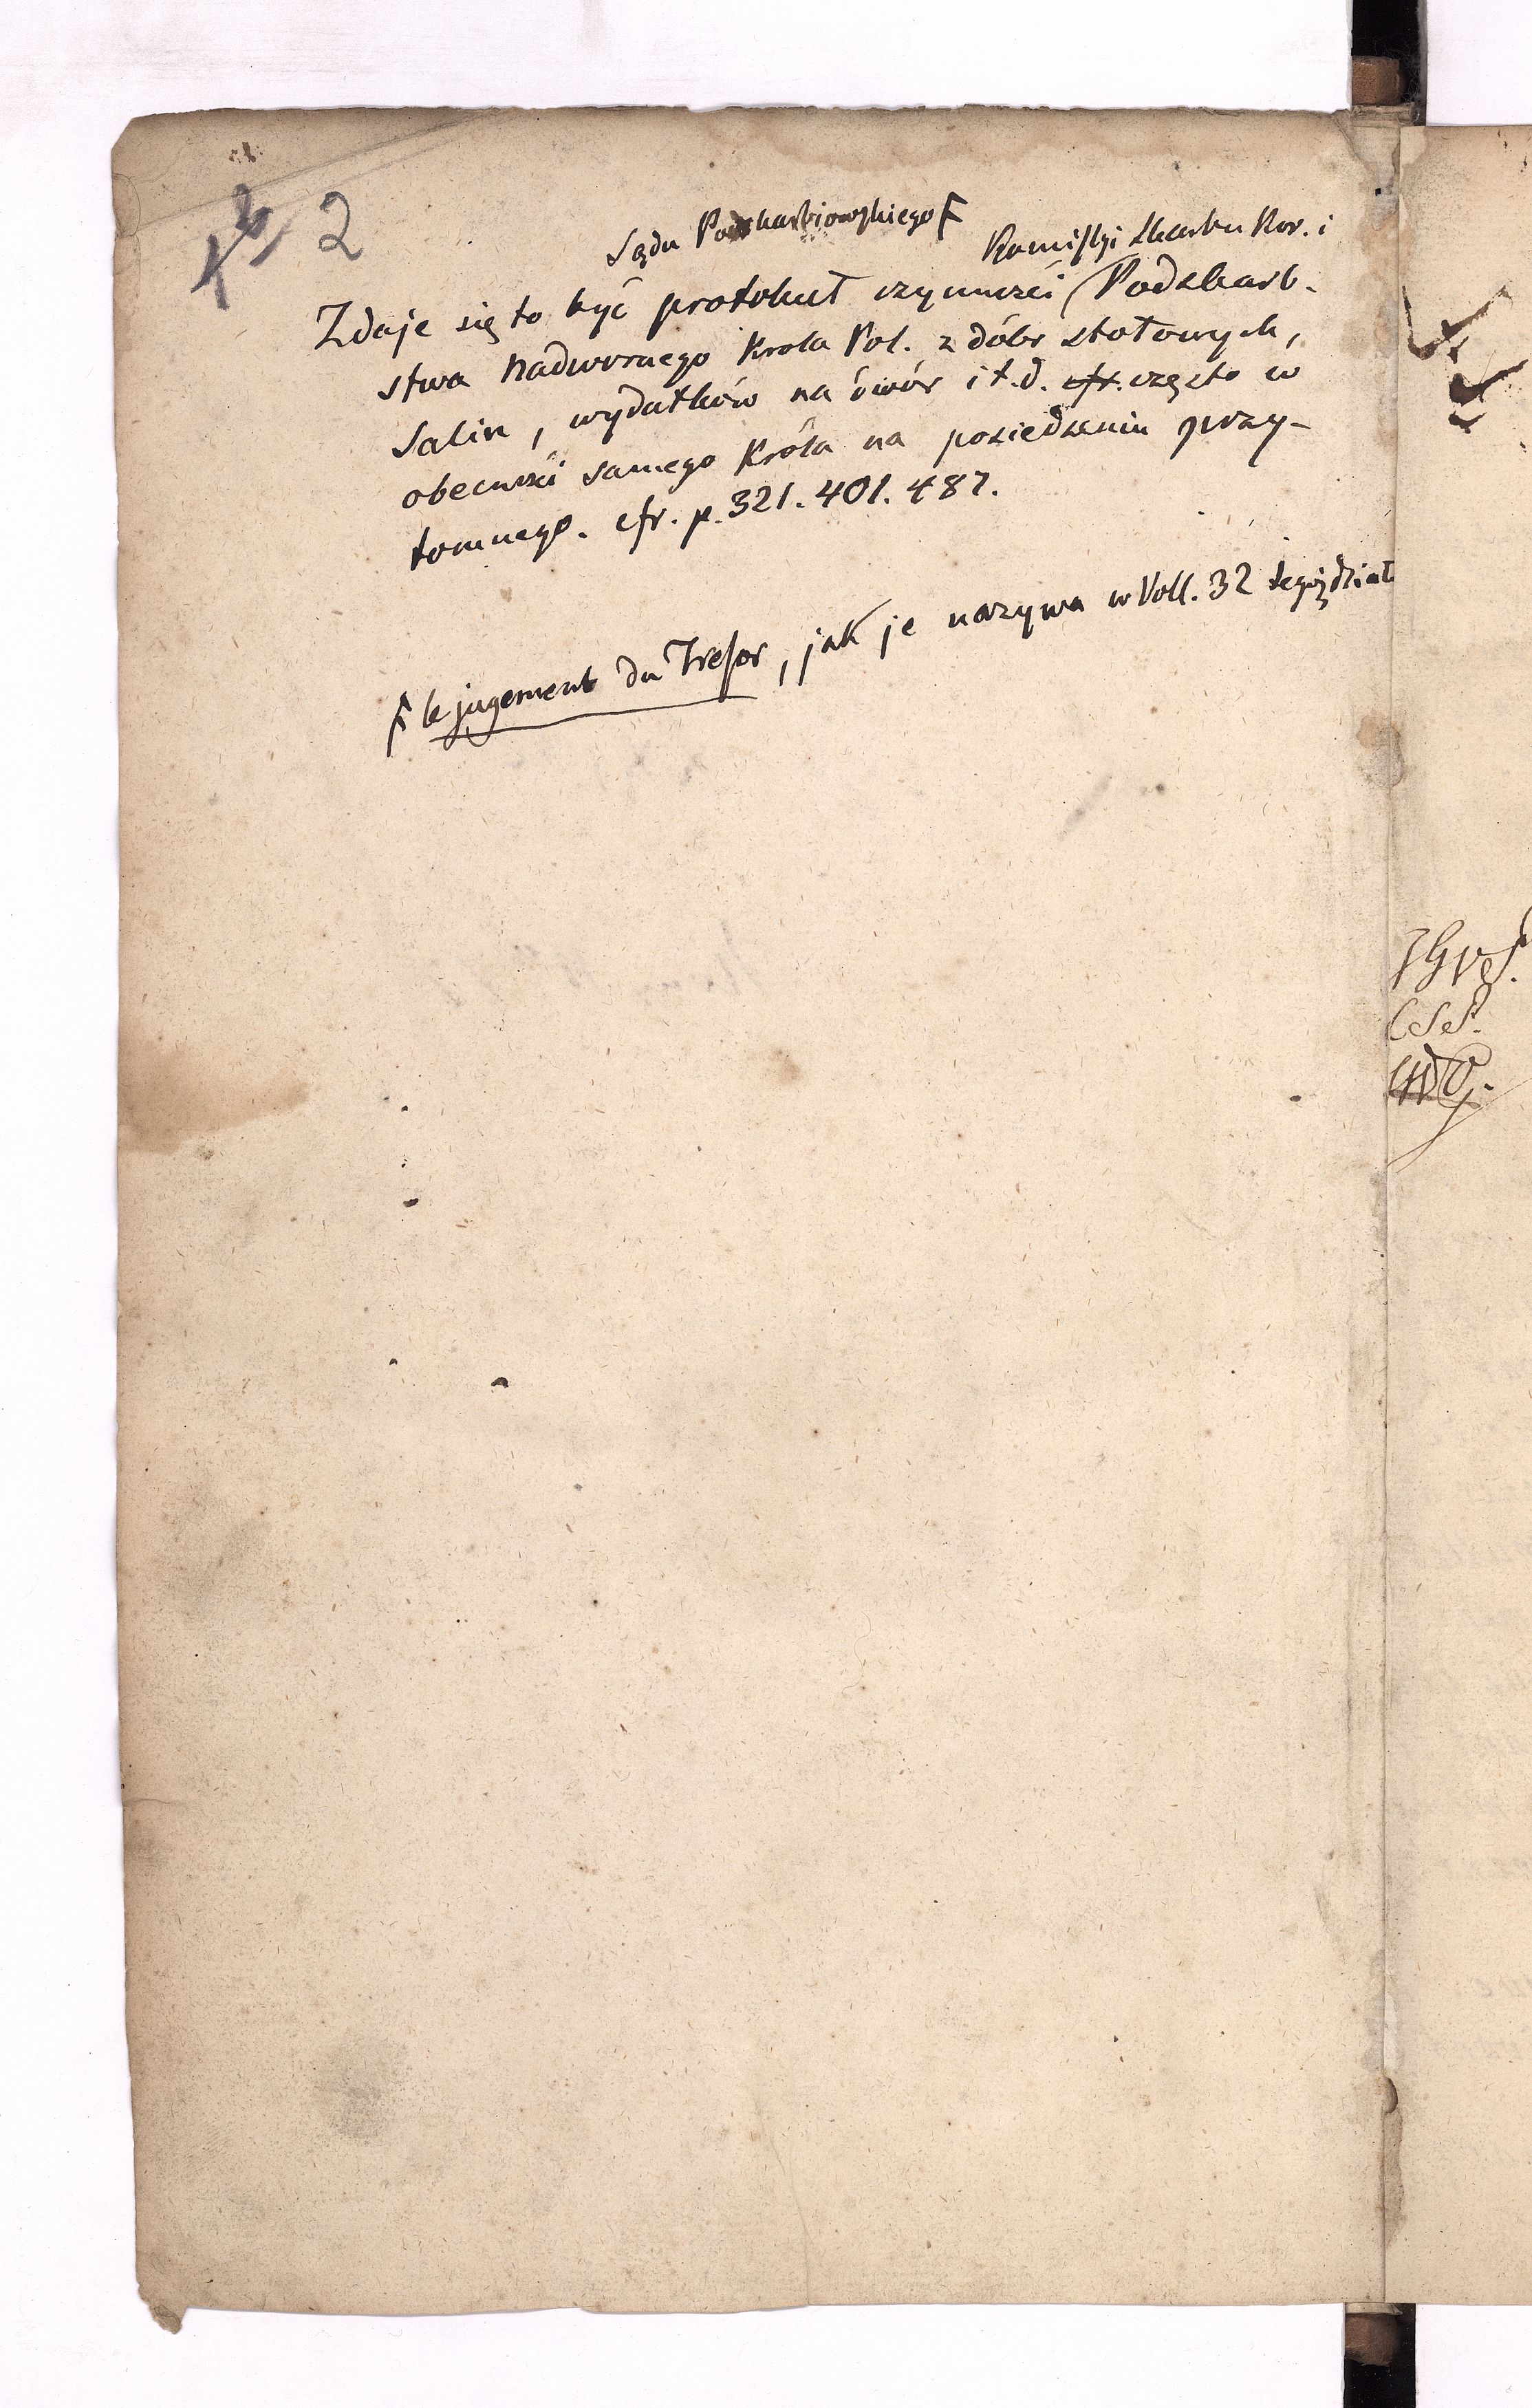 2
Sądu Podskarbiowskiego F
Komissyi Skarbu Kor. i
Zdaje się to być protokuł czynności Podskarb-
stwa Nadwornego Króla Pol. z dóbr stołowych,
Salin, wydatków na dwór i t.d. cfr. często w
obecności samego Króla na posiedzeniu przy-
tomnego. cfr. p. 321. 401. 487.
F le jugement du Tresor, jak je nazywa w Voll. 32 tegoż dział